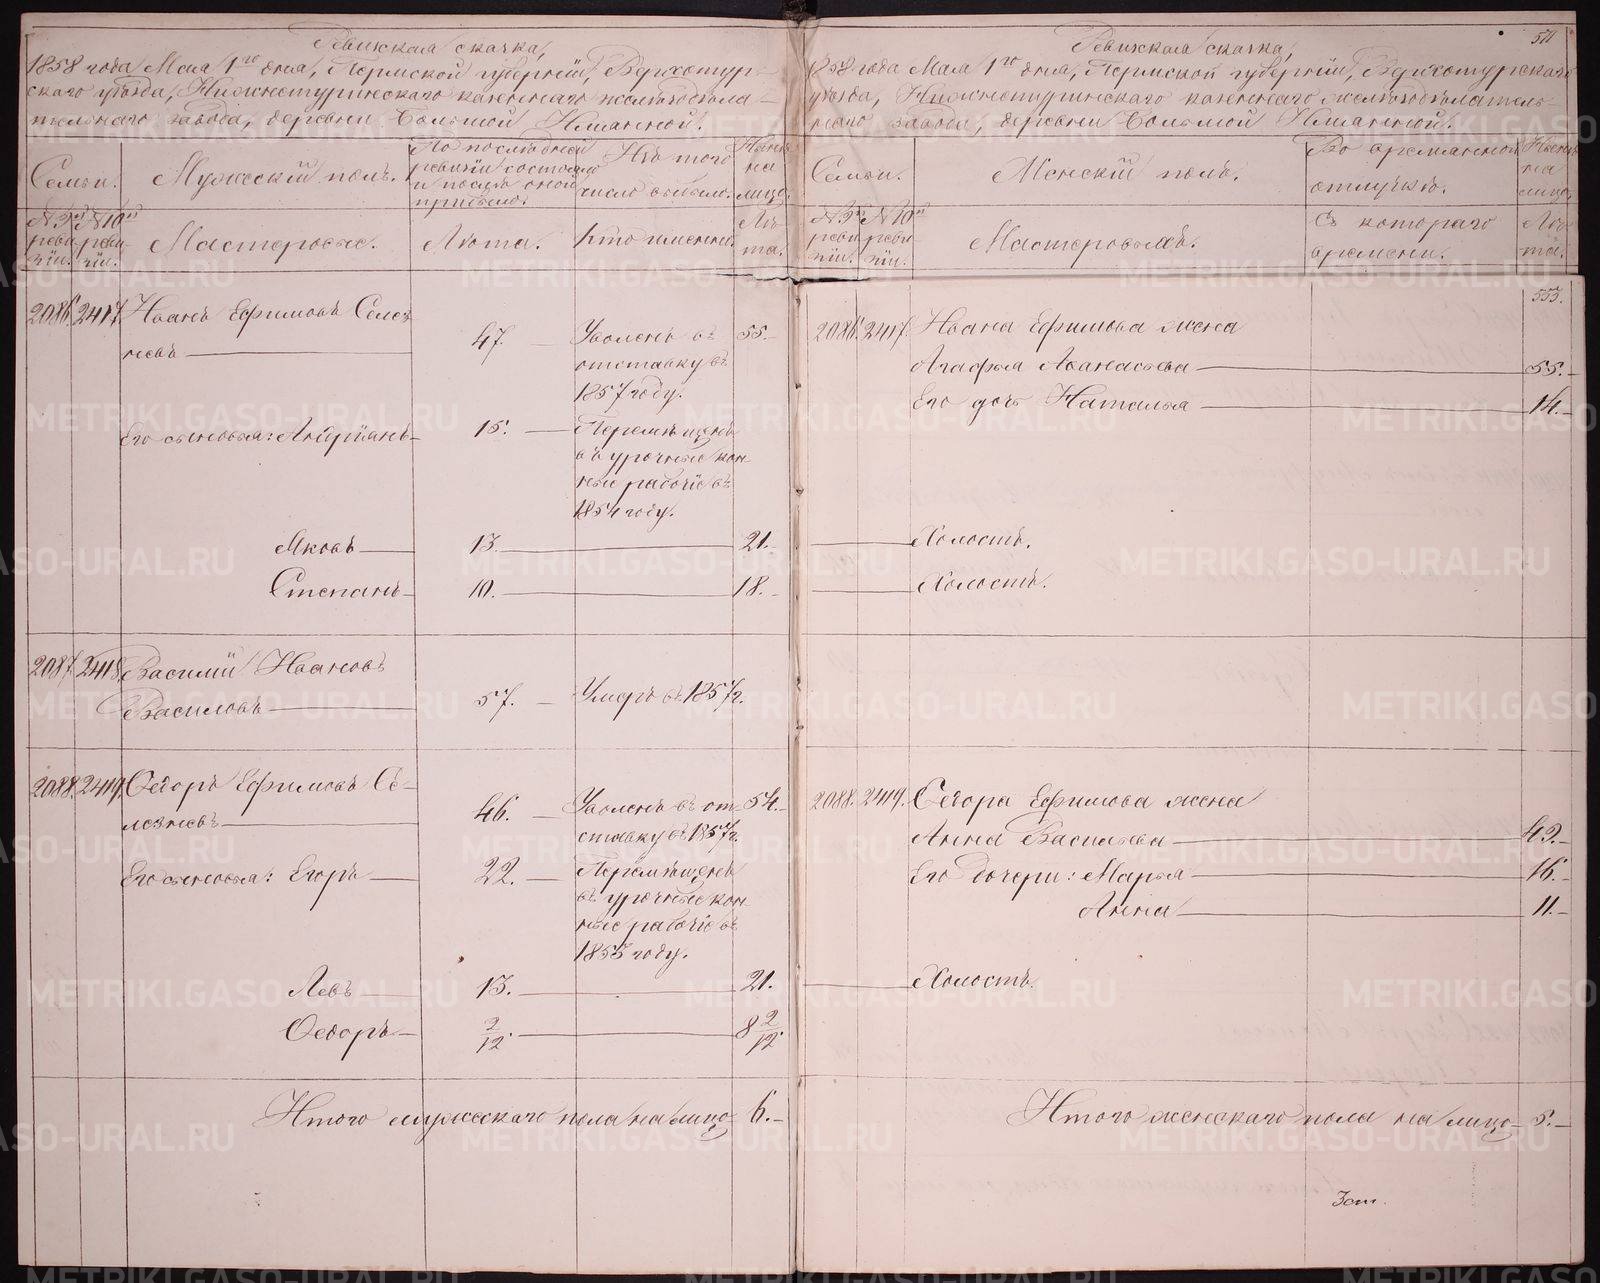 Ревизская сказка,
1858 года Мая 1го дня, Пермской губерніи, Верхотур-
скаго уѣзда, Нижнетуринскаго казеннаго желѣзодѣла-
тельнаго завода, деревни Большой Именной.
Семьи.
Мужескій полъ.
По послѣдней
ревизіи состояло
и послѣ оной
прибыло.
Изъ того
числа выбыло.
Нынѣ
на
лицо.
№ 9й
реви-
зіи.
№ 10й
реви-
зіи.
Мастеровые.
Лѣта.
Кто именно.
Лѣ-
та.
2086. 2417. Иванъ Ефимовъ Селез-
невъ
47.
Уволенъ въ
отставку въ
1857 году.
55.
Его сыновья: Андріянъ
15.
Перемѣщенъ
въ урочные кон-
ные рабочіе въ
1854 году.
Яковъ 13. 21.
Степанъ 10. 18.
2087. 2418. Василій Ивановъ
Василовъ
57. Умеръ въ 1857 г.
2088. 2419. Ѳедоръ Ефимовъ Се-
лезневъ
46.
Уволенъ въ от-
ставку въ 1857 г.
54.
Его сыновья: Егоръ
22.
Перемѣщенъ
въ урочные кон-
ные рабочіе въ
1853 году.
Левъ 13. 21.
Ѳедоръ 2/12. 8 2/12.
Итого мужескаго пола на лицо 6.
511
Ревизская сказка,
1858 года Мая 1го дня, Пермской губерніи, Верхотурскаго
уѣзда, Нижнетуринскаго казеннаго желѣзодѣлатель-
наго завода, деревни Большой Именной.
Семьи.
Женскій полъ.
Во временной
отлучкѣ.
Нынѣ
на
лицо.
№ 9й
реви-
зіи.
№ 10й
реви-
зіи.
Мастеровыхъ.
Съ котораго
времени.
Лѣ-
та.
553.
2086. 2417. Ивана Ефимова жена
Агафья Аѳанасьева 55.
Его дочь Наталья 14.
Холостъ.
Холостъ.
2088. 2419. Ѳедора Ефимова жена
Анна Васильева 49.
Его дочери: Марья 16.
Анна 11.
Холостъ.
Итого женскаго пола на лицо 5.
METRIKI.GASO-URAL.RU